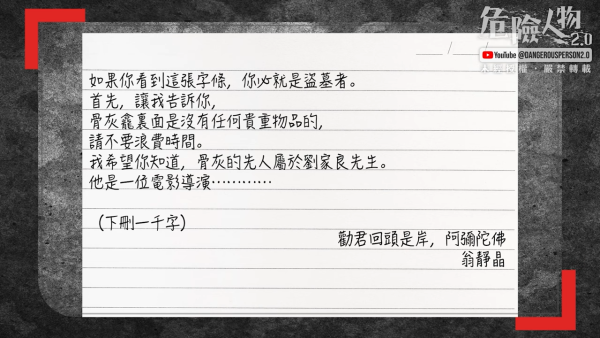 危險人物2.0
YouTube @DANGEROUSPERSON2.0
未經授權・嚴禁轉載
如果你看到這張字條，你必就是盜墓者。
首先，讓我告訴你，
骨灰龕裏面是沒有任何貴重物品的，
請不要浪費時間。
我希望你知道，骨灰的先人屬於劉家良先生。
他是一位電影導演…………
（下刪一千字）
勸君回頭是岸，阿彌陀佛
翁靜晶